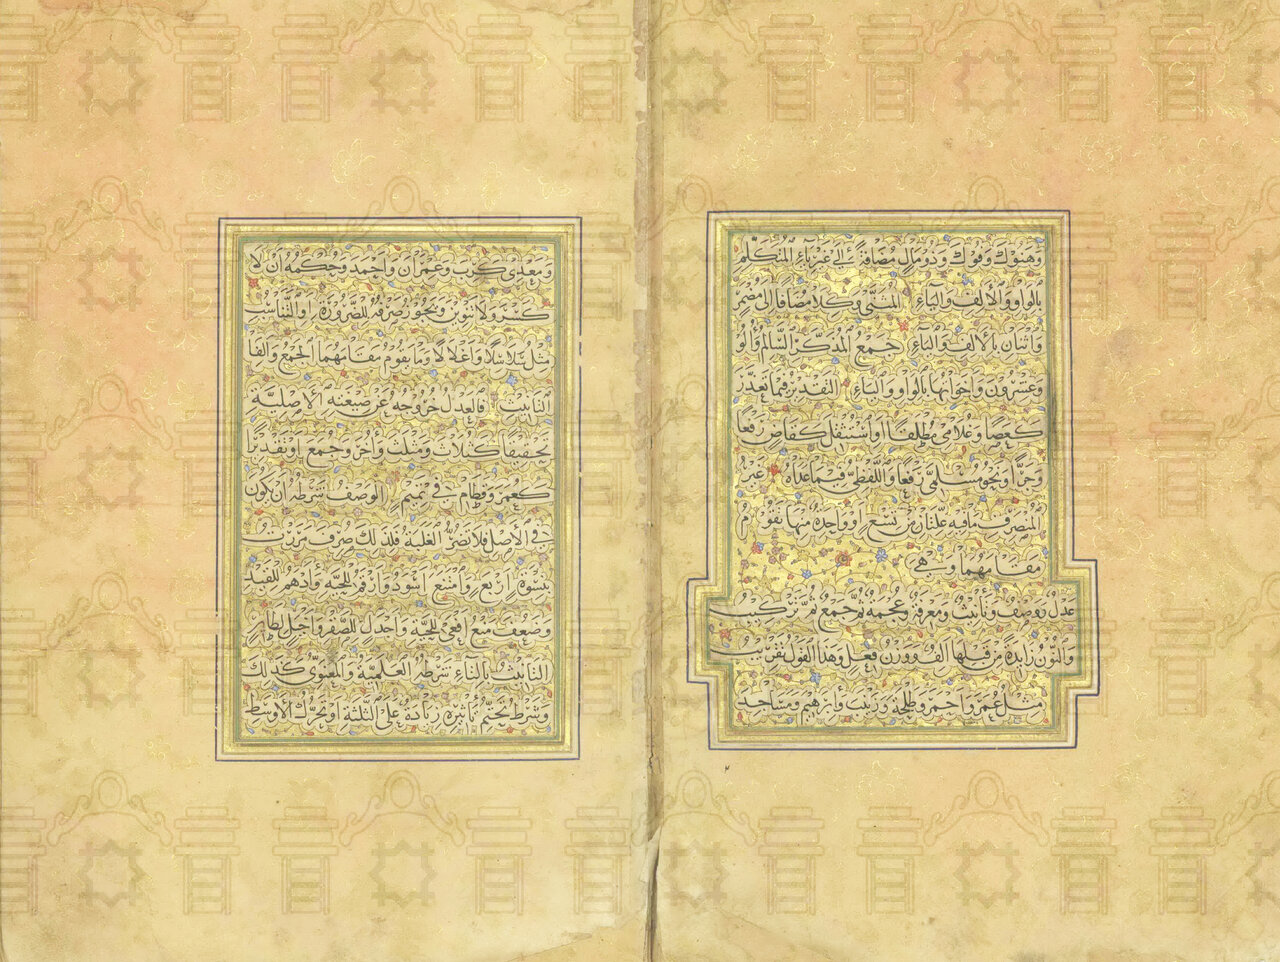 وَهَنُوكَ وَفُوكَ وَذُو مَالٍ مُضَافَةً إِلَى غَيْرِ يَاءِ الْمُتَكَلِّمِ
بِالْوَاوِ وَالْأَلِفِ وَالْيَاءِ الْمُثَنَّى وَكِلَا مُضَافًا إِلَى مُضْمَرٍ
وَاثْنَانِ بِالْأَلِفِ وَالْيَاءِ جَمْعُ الْمُذَكَّرِ السَّالِمُ وَأُولُو
وَعِشْرُونَ وَأَخَوَاتُهَا بِالْوَاوِ وَالْيَاءِ التَّقْدِيرُ فِيمَا تَعَذَّرَ
كَعَصًا وَغُلَامِي مُطْلَقًا أَوِ اسْتُثْقِلَ كَقَاضٍ رَفْعًا
وَجَرًّا وَنَحْوُ مُسْلِمِيَّ رَفْعًا وَاللَّفْظِيُّ فِيمَا عَدَاهُ غَيْرُ
الْمُنْصَرِفِ مَا فِيهِ عِلَّتَانِ مِنْ تِسْعٍ أَوْ وَاحِدَةٌ مِنْهَا تَقُومُ
مَقَامَهُمَا وَهِيَ
عَدْلٌ وَوَصْفٌ وَتَأْنِيثٌ وَمَعْرِفَةٌ وَعُجْمَةٌ ثُمَّ جَمْعٌ ثُمَّ تَرْكِيبُ
وَالنُّونُ زَائِدَةً مِنْ قَبْلِهَا أَلِفٌ وَوَزْنُ فِعْلٍ وَهَذَا الْقَوْلُ تَقْرِيبُ
مِثْلُ عُمَرَ وَأَحْمَرَ وَطَلْحَةَ وَزَيْنَبَ وَإِبْرَهِيمَ وَمَسَاجِدَ
وَمَعْدِي كَرِبَ وَعِمْرَانَ وَأَحْمَدَ وَحُكْمُهُ أَنْ لَا
كَسْرَ وَلَا تَنْوِينَ وَيَجُوزُ صَرْفُهُ لِلضَّرُورَةِ أَوِ التَّنَاسُبِ
مِثْلُ سَلَاسِلًا وَأَغْلَالًا وَمَا يَقُومُ مَقَامَهُمَا الْجَمْعُ وَأَلِفَا
التَّأْنِيثِ فَالْعَدْلُ خُرُوجُهُ عَنْ صِيغَتِهِ الْأَصْلِيَّةِ
تَحْقِيقًا كَثُلَاثَ وَمَثْلَثَ وَأُخَرَ وَجُمَعَ أَوْ تَقْدِيرًا
كَعُمَرَ وَقَطَامِ فِي تَمِيمٍ الْوَصْفُ شَرْطُهُ أَنْ يَكُونَ
فِي الْأَصْلِ فَلَا تَضُرُّهُ الْغَلَبَةُ فَلِذَلِكَ صُرِفَ مَرَرْتُ
بِنِسْوَةٍ أَرْبَعٍ وَامْتَنَعَ أَسْوَدُ وَأَرْقَمُ لِلْحَيَّةِ وَأَدْهَمُ لِلْقَيْدِ
وَضَعُفَ مَنْعُ أَفْعَى لِلْحَيَّةِ وَأَجْدَلٍ لِلصَّقْرِ وَأَخْيَلٍ لِطَائِرٍ
التَّأْنِيثُ بِالتَّاءِ شَرْطُهُ الْعَلَمِيَّةُ وَالْمَعْنَوِيُّ كَذَلِكَ
وَشَرْطُ تَحَتُّمِ تَأْثِيرِهِ زِيَادَةٌ عَلَى الثَّلَثَةِ أَوْ تَحَرُّكُ الْأَوْسَطِ